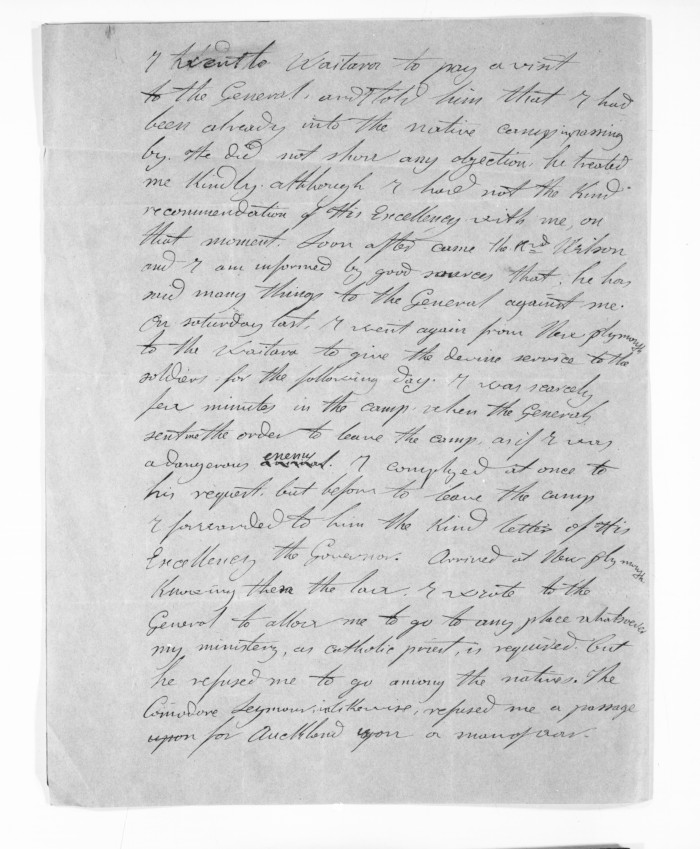 I went to Waitara to pay a visit
to the General, and told him that I had
been already into the native camp in passing
by. He did not show any objection, he treated
me Kindly. although I had not the Kind
recommendation of His Excellency with me, on
that moment. Soon after came the Rd Wilson
and I am informed by good sources that, he has
said many things to the General against me.
On saturday last, I went again from New plymouth
to the Waitara to give the devine service to the
soldiers for the following day. I was scarcely
few minutes in the camp when the General,
sent me the order to leave the camp, as if I was
a dangerous enemy. I complyed at once to
his request. but before to leave the camp
I forwarded to him the Kind letter of His
Excellency the Governor. Arrived at New plymouth
Knowing then the law. I wrote to the
General to allow me to go to any place whatsoever
my ministery, as catholic priest, is required. but
he refused me to go among the natives. The
Comodore Seymour, likewise, refused me a passage
upon for Auckland upon a man of war.